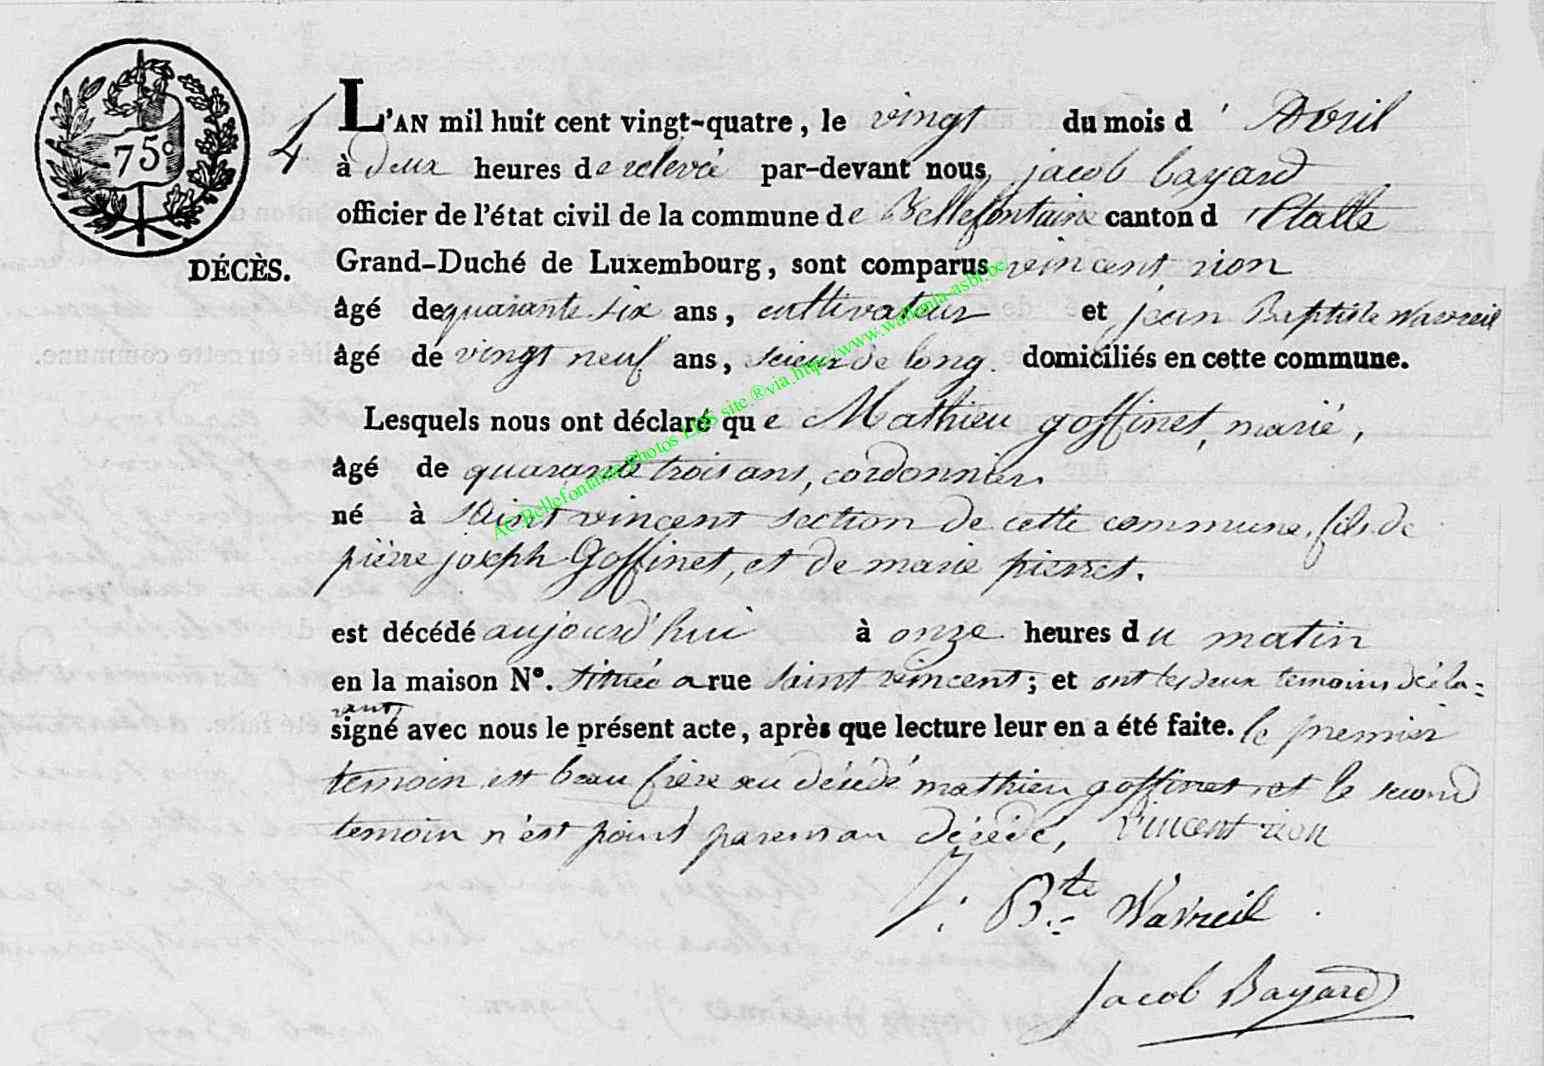 75c
4
L'AN mil huit cent vingt-quatre, le vingt du mois d' Avril
à deux heures de relevée par-devant nous, jacob bayard
officier de l'état civil de la commune de Bellefontaine canton d'Etalle
DÉCÈS.
Grand-Duché de Luxembourg, sont comparus vincent rion
âgé de quarante six ans, cultivateur et jean Baptiste Wavreil
âgé de vingt neuf ans, scieur de long. domiciliés en cette commune.
Lesquels nous ont déclaré que Mathieu goffinet, marié,
âgé de quarante trois ans, cordonnier
né à Saint vincent section de cette commune, fils de
pierre joseph Goffinet, et de marie pierret.
est décédé aujourd'hui à onze heures du matin
en la maison N°. située a rue saint vincent; et ont les deux temoins décla=
rants
signé avec nous le présent acte, après que lecture leur en a été faite. le premier
temoin est beau frère au décédé mathieu goffinet, et le second
temoin n'est point parens au décédé, vincent rion
J: Bte Wavreil
Jacob Bayard
AC Bellefontaine Photos LDS site.®via.http:/www.wallonia-asbl.be